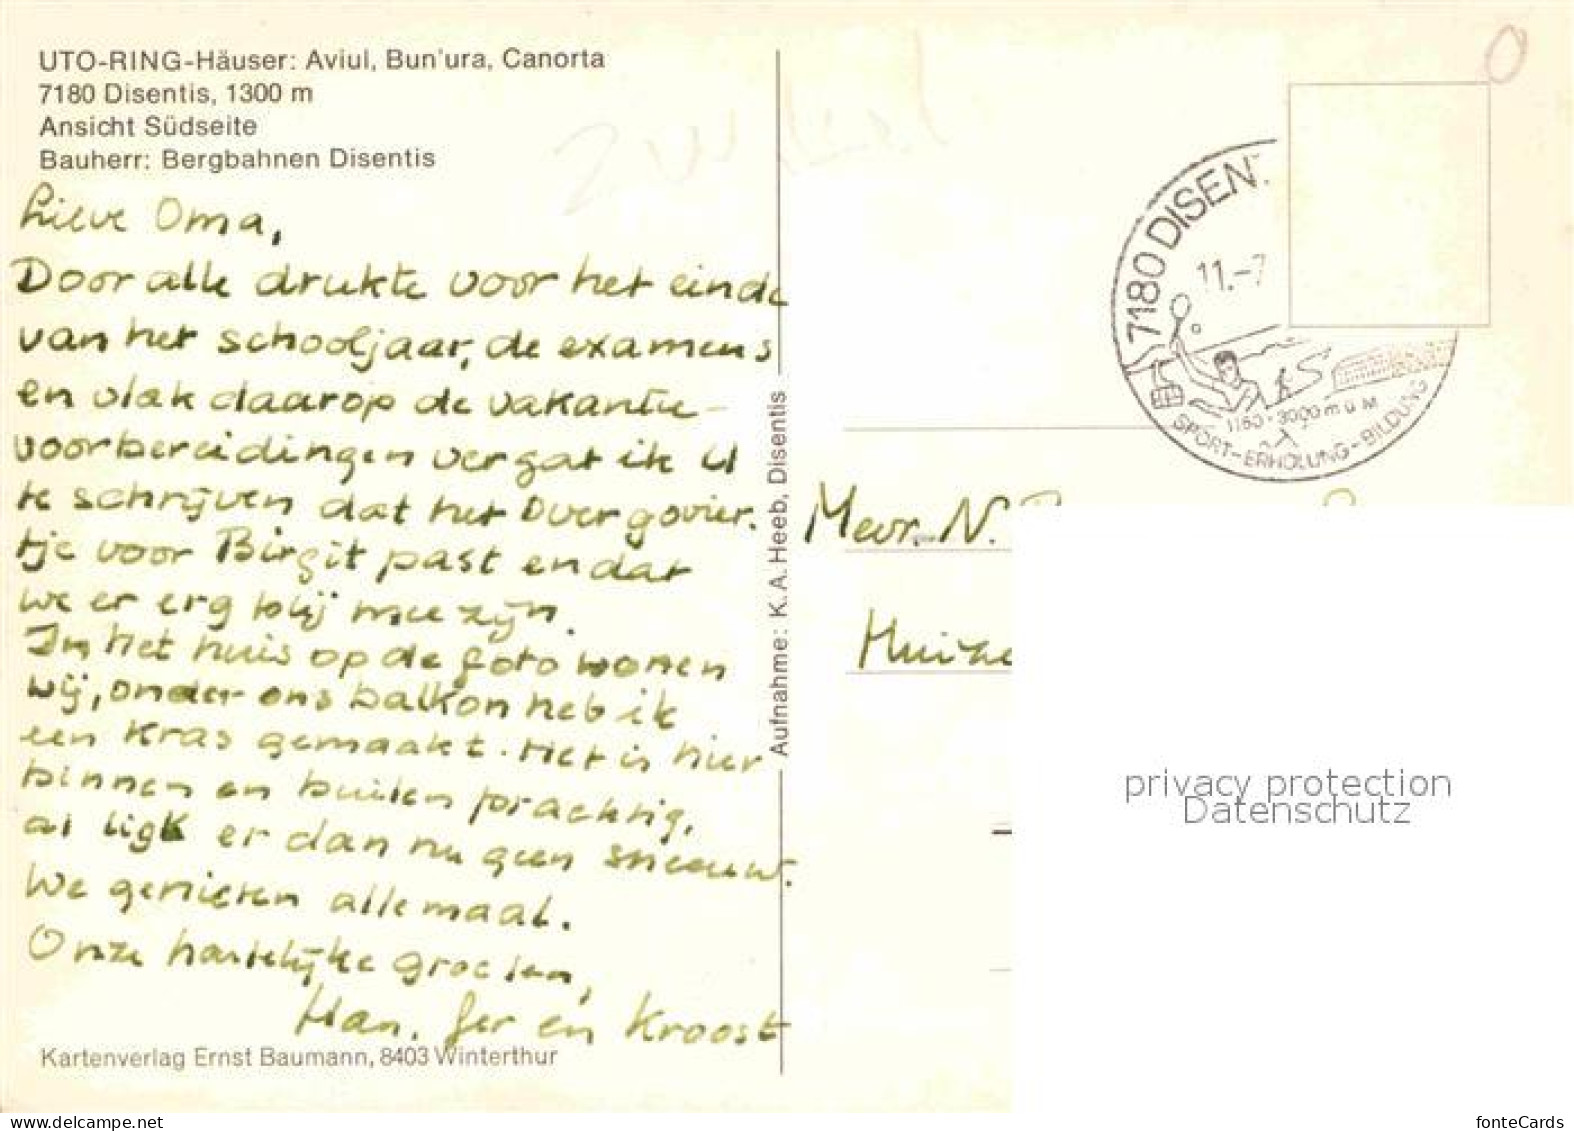 UTO-RING-Häuser: Aviul, Bun'ura, Canorta
7180 Disentis, 1300 m
Ansicht Südseite
Bauherr: Bergbahnen Disentis
Lieve Oma,
Door alle drukte voor het einde
van het schooljaar, de examens
en vlak daarop de vakantie-
voorbereidingen vergat ik U
te schrijven dat het overgooier-
tje voor Birgit past en dat
we er erg blij mee zijn.
In het huis op de foto wonen
wij, onder ons balkon heb ik
een kras gemaakt. Het is hier
binnen en buiten prachtig,
al ligt er dan nu geen sneeuw.
We genieten allemaal.
Onze hartelijke groeten,
Han, Ger en Kroost
Kartenverlag Ernst Baumann, 8403 Winterthur
Aufnahme: K. A. Heeb, Disentis
7180 DISENT
11.-7
1150-3000 m ü M
SPORT-ERHOLUNG-BILDUNG
Mevr. N.
privacy protection
Datenschutz
fonteCards